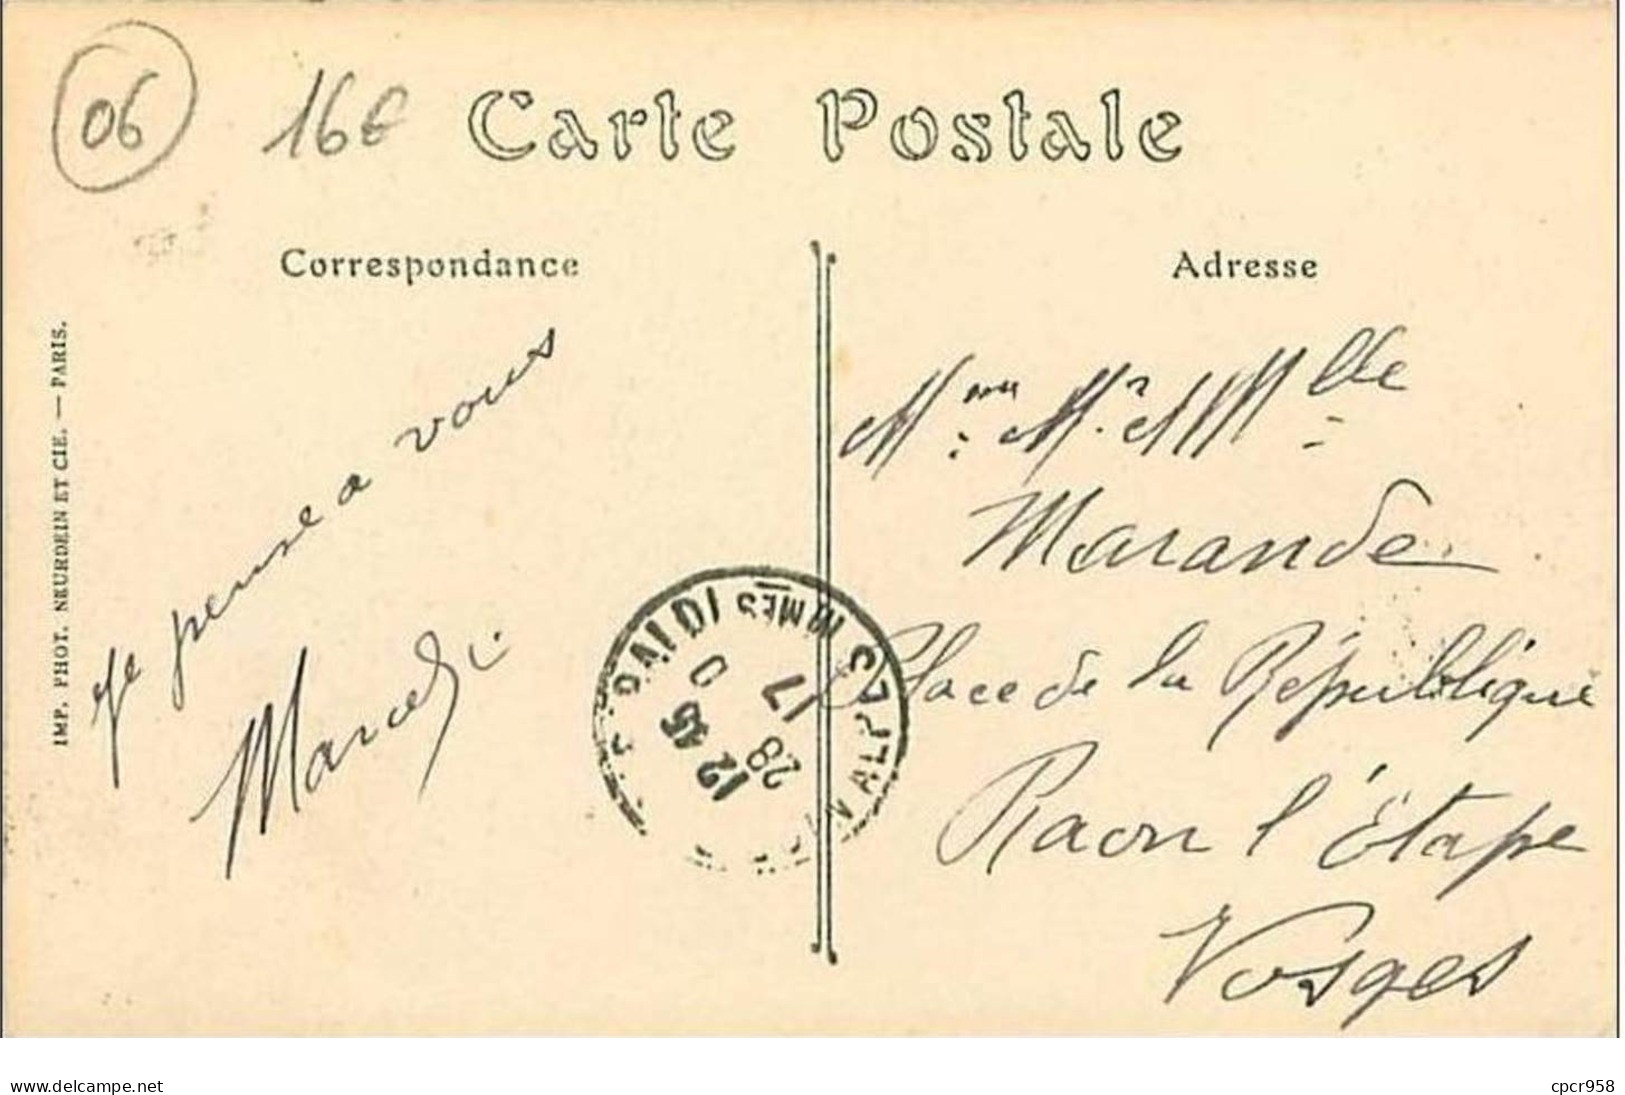 06
16€
Carte Postale
Correspondance
Adresse
IMP. PHOT. NEURDEIN ET CIE. — PARIS.
Je pense a vous
Marcel
Mme Mr et Mlle
Marande
Place de la République
Raon l'Étape
Vosges
12 45
28
17
MMES ALP
www.delcampe.net
cpcr958